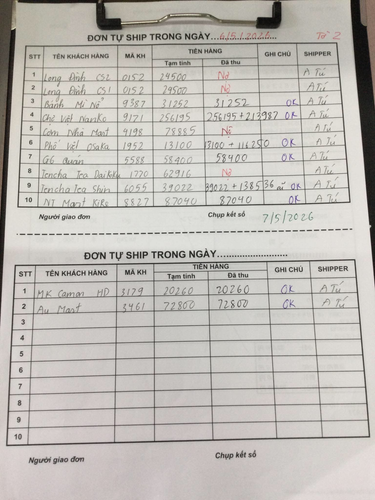 ĐƠN TỰ SHIP TRONG NGÀY 6/5/2026 Tờ 2
STT TÊN KHÁCH HÀNG MÃ KH TIỀN HÀNG GHI CHÚ SHIPPER
Tạm tính Đã thu
1 Long Đỉnh CS2 0152 24500 Nợ A Tú
2 Long Đỉnh CS1 0152 24500 Nợ A Tú
3 Bánh Mì 9387 31252 31252 OK A Tú
4 Chè Việt Naniko 9171 256195 256195 + 213987 OK A Tú
5 Cơm Nhà Mart 4198 78885 Nợ A Tú
6 Phở Việt Osaka 1952 13100 13100 + 116250 OK A Tú
7 G6 Quán 5588 58400 58400 OK A Tú
8 Tencha Tea 1770 62916 Nợ A Tú
9 Tencha Tea Shin 6055 39022 39022 + 138536 OK A Tú
10 NT Mart Kiko 8827 87040 87040 OK A Tú
Người giao đơn Chụp kết sổ 7/5/2026
ĐƠN TỰ SHIP TRONG NGÀY
STT TÊN KHÁCH HÀNG MÃ KH TIỀN HÀNG GHI CHÚ SHIPPER
Tạm tính Đã thu
1 MK Camon HD 3179 20260 20260 OK A Tú
2 Au Mart 3461 72800 72800 OK A Tú
3
4
5
6
7
8
9
10
Người giao đơn Chụp kết sổ